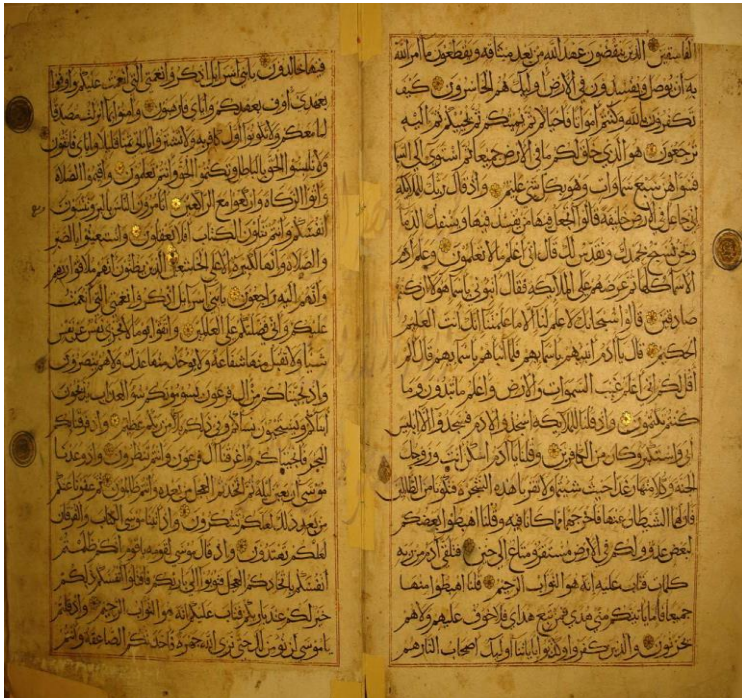 لفاسقين الذين ينقضون عهد الله من بعد ميثاقه ويقطعون ما امر الله
به ان يوصل ويفسدون في الارض اوليك هم الخاسرون كيف
تكفرون بالله وكنتم امواتا فاحياكم ثم يميتكم ثم يحييكم ثم اليه
ترجعون هو الذي خلق لكم ما في الارض جميعا ثم استوى الى السما
فسواهن سبع سماوات وهو بكل شي عليم واذ قال ربك لللايكة
اني جاعل في الارض خليفة قالوا اتجعل فيها من يفسد فيها ويسفك الدما
ونحن نسبح بحمدك ونقدس لك قال اني اعلم ما لا تعلمون وعلم ادم
الاسما كلها ثم عرضهم على الملايكة فقال انبوني باسما هولا ان كنتم
صادقين قالوا سبحانك لا علم لنا الا ما علمتنا انك انت العليم
الحكيم قال يا آدم انبيهم باسمايهم فلما انباهم باسمايهم قال الم
اقل لكم اني اعلم غيب السموات والارض واعلم ما تبدون وما
كنتم تكتمون واذ قلنا للملايكة اسجدوا لادم فسجدوا الا ابليس
ابى واستكبر وكان من الكافرين وقلنا يا آدم اسكن انت وزوجك
الجنة وكلا منها رغدا حيث شيتما ولا تقربا هذه الشجرة فتكونا من الظالمين
فازلهما الشيطان عنها فاخرجهما مما كانا فيه وقلنا اهبطوا بعضكم
لبعض عدو ولكم في الارض مستقر ومتاع الى حين فتلقى آدم من ربه
كلمات فتاب عليه انه هو التواب الرحيم قلنا اهبطوا منها
جميعا فاما ياتينكم مني هدى فمن تبع هداي فلا خوف عليهم ولا هم
يحزنون والذين كفروا وكذبوا باياتنا اوليك اصحاب النار هم
فيها خالدون يا بني اسرايل اذكروا نعمتي التي انعمت عليكم واوفوا
بعهدي اوف بعهدكم واياي فارهبون وامنوا بما انزلت مصدقا
لما معكم ولا تكونوا اول كافر به ولا تشتروا باياتي ثمنا قليلا واياي فاتقون
ولا تلبسوا الحق بالباطل وتكتموا الحق وانتم تعلمون واقيموا الصلاة
واتوا الزكاة واركعوا مع الراكعين اتامرون الناس بالبر وتنسون
انفسكم وانتم تتلون الكتاب افلا تعقلون واستعينوا بالصبر
والصلاة وانها لكبيرة الا على الخاشعين الذين يظنون انهم ملاقوا ربهم
وانهم اليه راجعون يا بني اسرايل اذكروا نعمتي التي انعمت
عليكم واني فضلتكم على العالمين واتقوا يوما لا تجزي نفس عن نفس
شيا ولا تقبل منها شفاعة ولا يوخذ منها عدل ولا هم ينصرون
واذ نجيناكم من آل فرعون يسومونكم سو العذاب يذبحون
ابناكم ويستحيون نساكم وفي ذلكم بلا من ربكم عظيم واذ فرقنا بكم
البحر فانجيناكم واغرقنا آل فرعون وانتم تنظرون واذ وعدنا
موسى اربعين ليلة ثم اتخذتم العجل من بعده وانتم ظالمون ثم عفونا عنكم
من بعد ذلك لعلكم تشكرون واذ اتينا موسى الكتاب والفرقان
لعلكم تهتدون واذ قال موسى لقومه يا قوم انكم ظلمتم
انفسكم باتخاذكم العجل فتوبوا الى باريكم فاقتلوا انفسكم ذلكم
خير لكم عند باريكم فتاب عليكم انه هو التواب الرحيم واذ قلتم
يا موسى لن نومن لك حتى نرى الله جهرة فاخذتكم الصاعقة وانتم